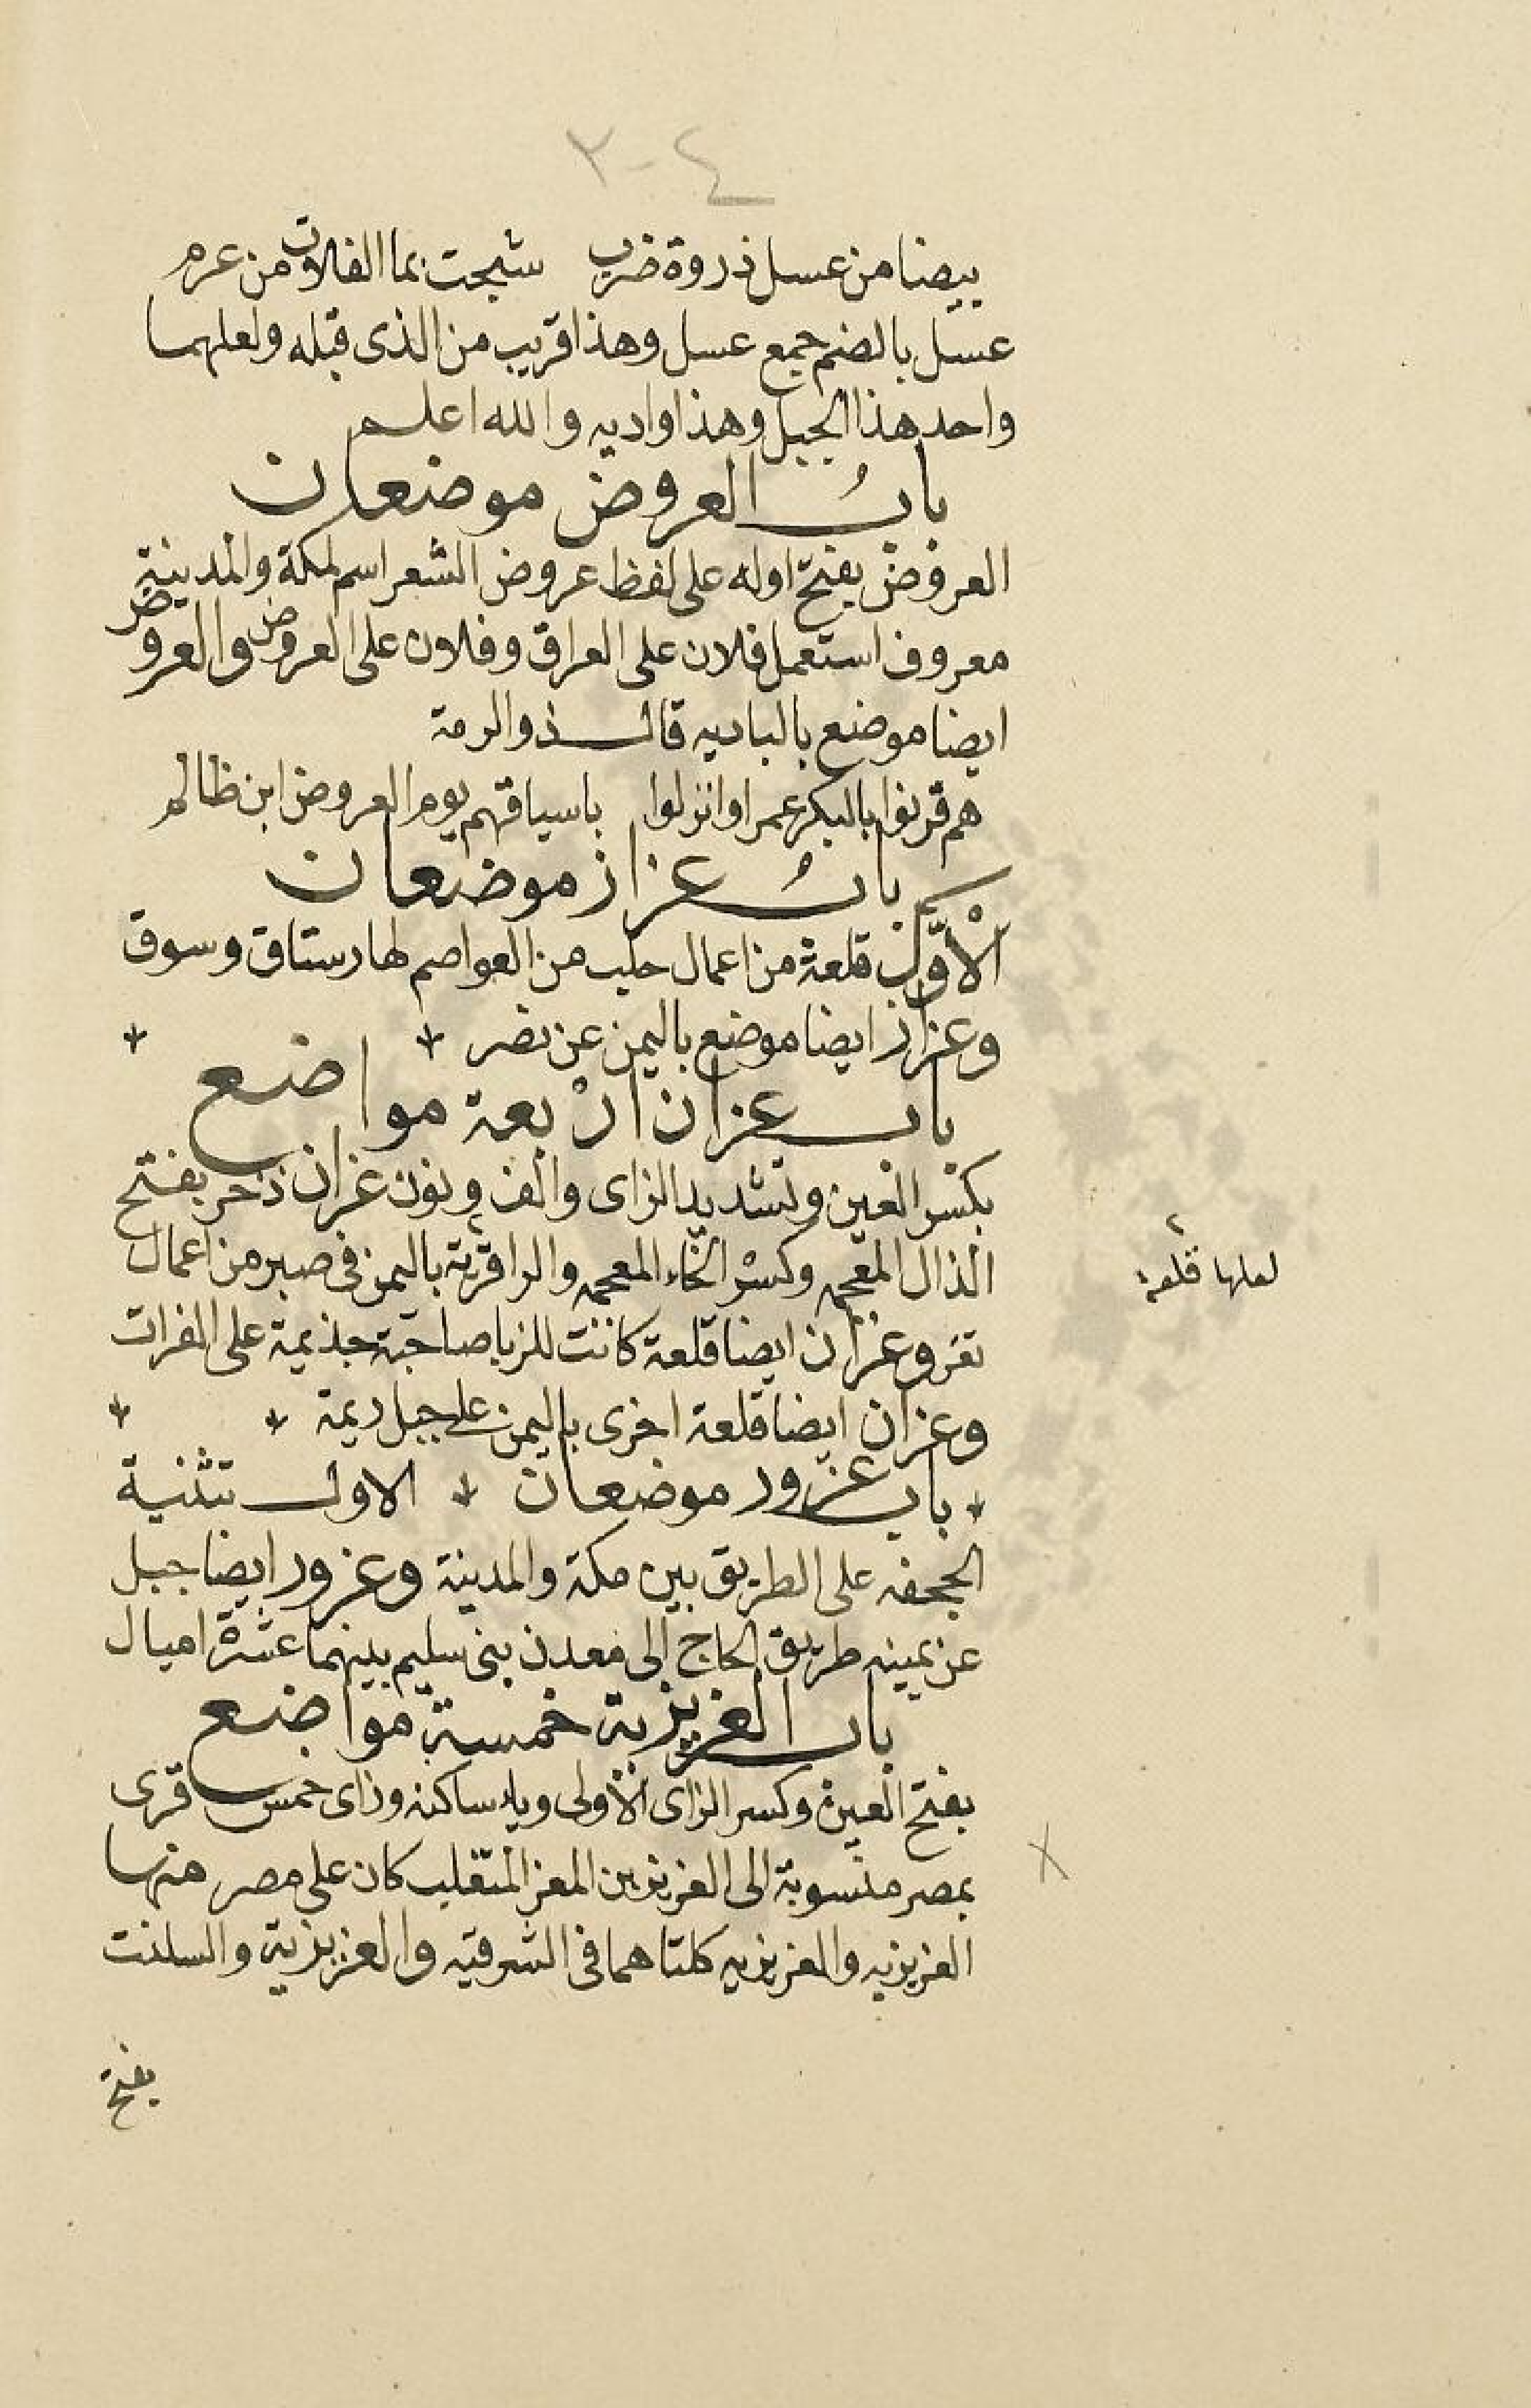 ٣٠٤
بيضا من عسل ذروة ضرب شجت بما الفلات من عرم
عسل بالضم جمع عسل وهذا قريب من الذى قبله ولعلهما
واحد هذا الجبل وهذا واديه والله اعلم
باب العروض موضعان
العروض بفتح اوله على لفظ عروض الشعر اسم لمكة والمدينة
معروف استعمل فلان على العراق وفلان على العروض والعروض
ايضا موضع بالباديه قال ذو الرمة
هم قرنوا بالبكر عمرا وانزلوا باسيافهم يوم العروض ابن ظالم
باب عزاز موضعان
الأول قلعة من اعمال حلب من العواصم لها رستاق وسوق
وعزاز ايضا موضع باليمن عن نصر
باب عزان اربعة مواضع
بكسر العين وتشديد الزاى والف ونون عزان ذخر بفتح
الذال المعجمه وكسر الخاء المعجمه والرا قرية باليمن فى صبر من اعمال
لعلها قلعة
تعز وعزان ايضا قلعة كانت للزبا صاحبة جذيمة على الفرات
وعزان ايضا قلعة اخرى باليمن على جبل ريمة
باب عزور موضعان الاول تثنية
الجحفه على الطريق بين مكة والمدينة وعزور ايضا جبل
عن يمينه طريق الحاج الى معدن بنى سليم بينهما عشرة اميال
باب العزيزية خمسة مواضع
بفتح العين وكسر الزاى الأولى وياء ساكنه وزاى خمس قرى
بمصر منسوبة الى العزيز بن المعز المتغلب كان على مصر منها
العزيزيه والعزيزيه كلتاهما فى الشرقيه والعزيزية والسلنت
بفتح